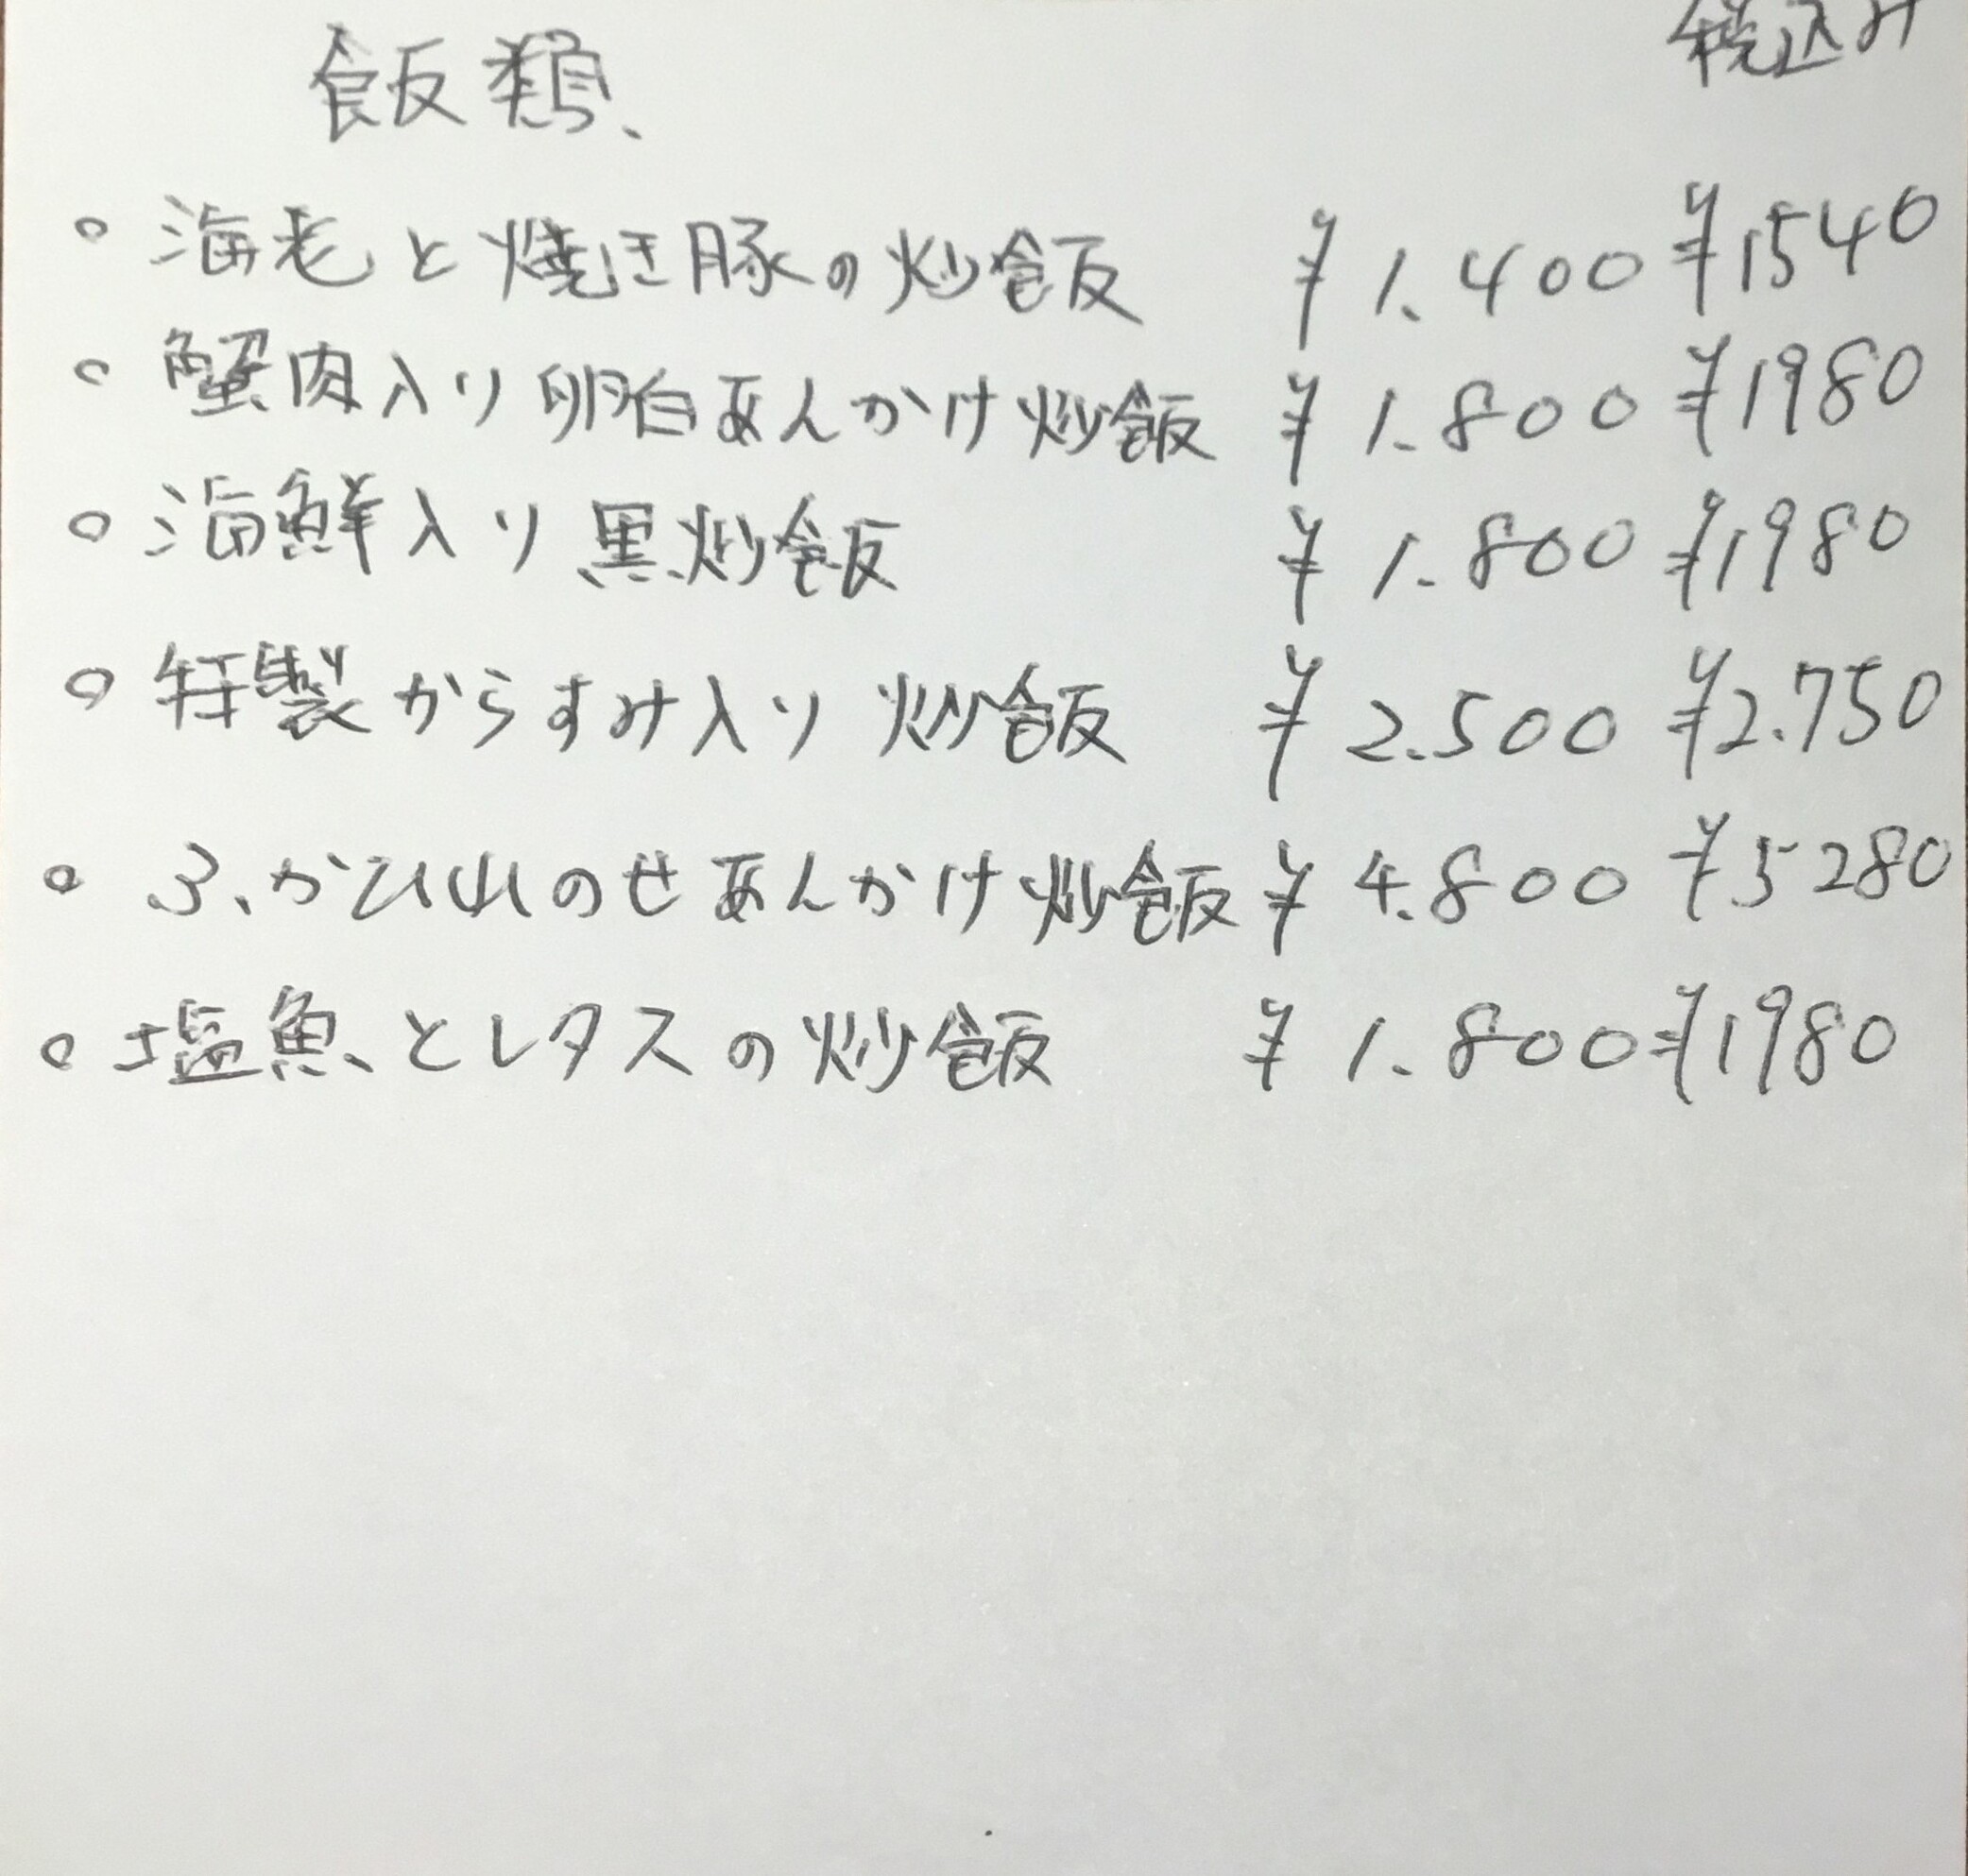 飯類、 税込み
○ 海老と焼き豚の炒飯 ¥1.400 ¥1540
○ 蟹肉入り卵白あんかけ炒飯 ¥1.800 ¥1980
○ 海鮮入り黒炒飯 ¥1.800 ¥1980
○ 特製からすみ入り炒飯 ¥2.500 ¥2.750
○ ふかひれのせあんかけ炒飯 ¥4.800 ¥5280
○ 塩魚とレタスの炒飯 ¥1.800 ¥1980